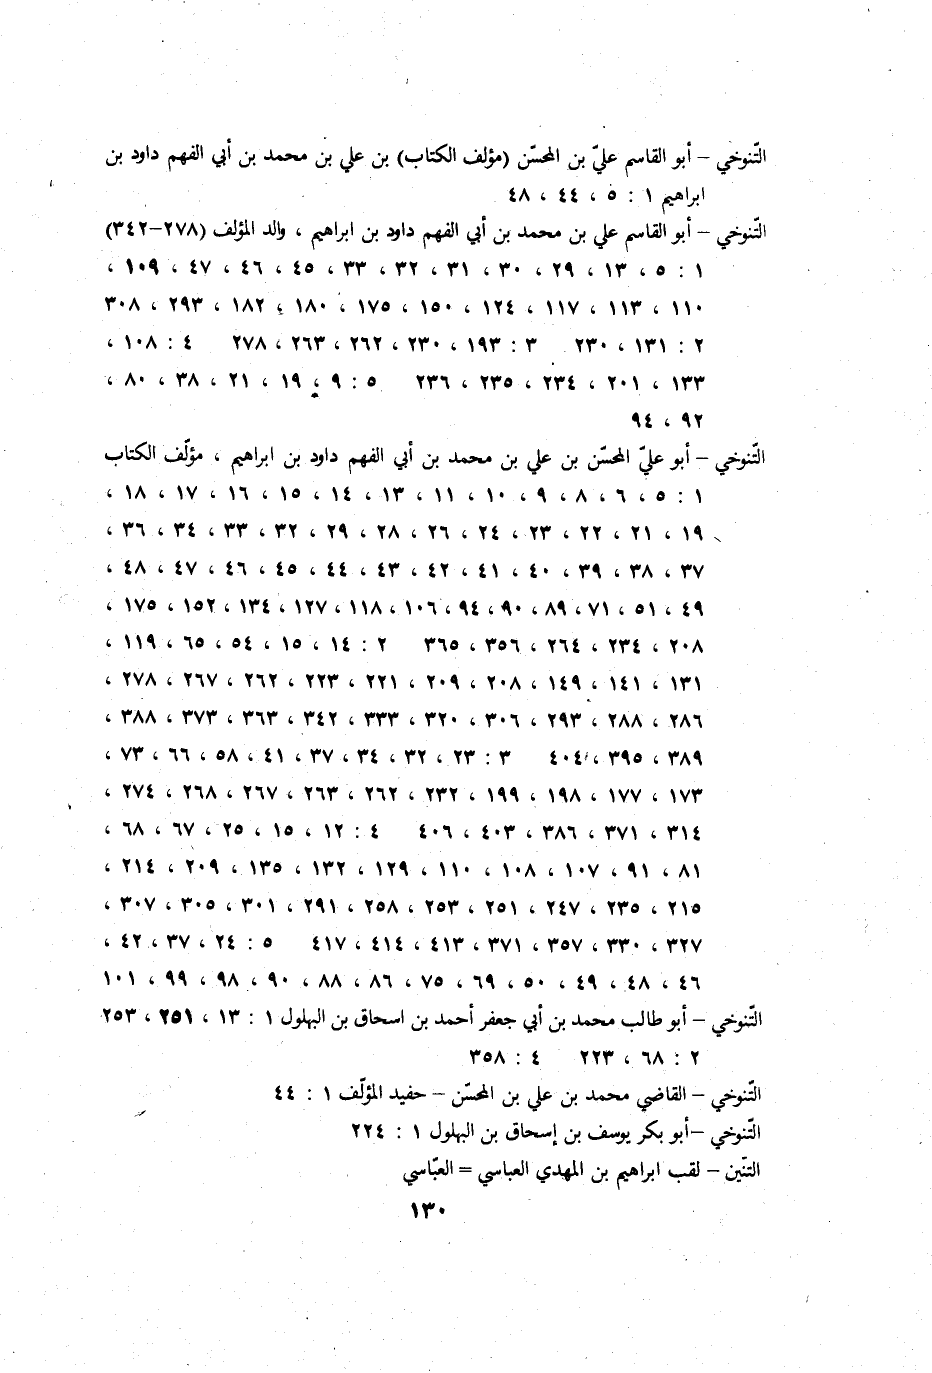 التّنوخي – أبو القاسم عليّ بن المحسّن (مؤلف الكتاب) بن علي بن محمد بن أبي الفهم داود بن
ابراهيم ١ : ٥ ، ٤٤ ، ٤٨
التّنوخي – أبو القاسم علي بن محمد بن أبي الفهم داود بن ابراهيم ، والد المؤلف (٢٧٨–٣٤٢)
١ : ٥ ، ١٣ ، ٢٩ ، ٣٠ ، ٣١ ، ٣٢ ، ٣٣ ، ٤٥ ، ٤٦ ، ٤٧ ، ١٠٩ ،
١١٠ ، ١١٣ ، ١١٧ ، ١٢٤ ، ١٥٠ ، ١٧٥ ، ١٨٠ ، ١٨٢ ، ٢٩٣ ، ٣٠٨
٢ : ١٣١ ، ٢٣٠ ٣ : ١٩٣ ، ٢٣٠ ، ٢٦٢ ، ٢٦٣ ، ٢٧٨ ٤ : ١٠٨ ،
١٣٣ ، ٢٠١ ، ٢٣٤ ، ٢٣٥ ، ٢٣٦ ٥ : ٩ ، ١٩ ، ٢١ ، ٣٨ ، ٨٠ ،
٩٢ ، ٩٤
التّنوخي – أبو عليّ المحسّن بن علي بن محمد بن أبي الفهم داود بن ابراهيم ، مؤلّف الكتاب
١ : ٥ ، ٦ ، ٨ ، ٩ ، ١٠ ، ١١ ، ١٣ ، ١٤ ، ١٥ ، ١٦ ، ١٧ ، ١٨ ،
١٩ ، ٢١ ، ٢٢ ، ٢٣ ، ٢٤ ، ٢٦ ، ٢٨ ، ٢٩ ، ٣٢ ، ٣٣ ، ٣٤ ، ٣٦ ،
٣٧ ، ٣٨ ، ٣٩ ، ٤٠ ، ٤١ ، ٤٢ ، ٤٣ ، ٤٤ ، ٤٥ ، ٤٦ ، ٤٧ ، ٤٨ ،
٤٩ ، ٥١ ، ٧١ ، ٨٩ ، ٩٠ ، ٩٤ ، ١٠٦ ، ١١٨ ، ١٢٧ ، ١٣٤ ، ١٥٢ ، ١٧٥ ،
٢٠٨ ، ٢٣٤ ، ٢٦٤ ، ٣٥٦ ، ٣٦٥ ٢ : ١٤ ، ١٥ ، ٥٤ ، ٦٥ ، ١١٩ ،
١٣١ ، ١٤١ ، ١٤٩ ، ٢٠٨ ، ٢٠٩ ، ٢٢١ ، ٢٢٣ ، ٢٦٢ ، ٢٦٧ ، ٢٧٨ ،
٢٨٦ ، ٢٨٨ ، ٢٩٣ ، ٣٠٦ ، ٣٢٠ ، ٣٣٣ ، ٣٤٢ ، ٣٦٣ ، ٣٧٣ ، ٣٨٨ ،
٣٨٩ ، ٣٩٥ ، ٤٠٤ ٣ : ٢٣ ، ٣٢ ، ٣٤ ، ٣٧ ، ٤١ ، ٥٨ ، ٦٦ ، ٧٣ ،
١٧٣ ، ١٧٧ ، ١٩٨ ، ١٩٩ ، ٢٣٢ ، ٢٦٢ ، ٢٦٣ ، ٢٦٧ ، ٢٦٨ ، ٢٧٤ ،
٣١٤ ، ٣٧١ ، ٣٨٦ ، ٤٠٣ ، ٤٠٦ ٤ : ١٢ ، ١٥ ، ٢٥ ، ٦٧ ، ٦٨ ،
٨١ ، ٩١ ، ١٠٧ ، ١٠٨ ، ١١٠ ، ١٢٩ ، ١٣٢ ، ١٣٥ ، ٢٠٩ ، ٢١٤ ،
٢١٥ ، ٢٣٥ ، ٢٤٧ ، ٢٥١ ، ٢٥٣ ، ٢٥٨ ، ٢٩١ ، ٣٠١ ، ٣٠٥ ، ٣٠٧ ،
٣٢٧ ، ٣٣٠ ، ٣٥٧ ، ٣٧١ ، ٤١٣ ، ٤١٤ ، ٤١٧ ٥ : ٢٤ ، ٣٧ ، ٤٢ ،
٤٦ ، ٤٨ ، ٤٩ ، ٥٠ ، ٦٩ ، ٧٥ ، ٨٦ ، ٨٨ ، ٩٠ ، ٩٨ ، ٩٩ ، ١٠١
التّنوخي – أبو طالب محمد بن أبي جعفر أحمد بن اسحاق بن البهلول ١ : ١٣ ، ٢٥١ ، ٢٥٣
٢ : ٦٨ ، ٢٢٣ ٤ : ٣٥٨
التّنوخي – القاضي محمد بن علي بن المحسّن – حفيد المؤلّف ١ : ٤٤
التّنوخي –أبو بكر يوسف بن إسحاق بن البهلول ١ : ٢٢٤
التنّين – لقب ابراهيم بن المهدي العباسي = العبّاسي
١٣٠